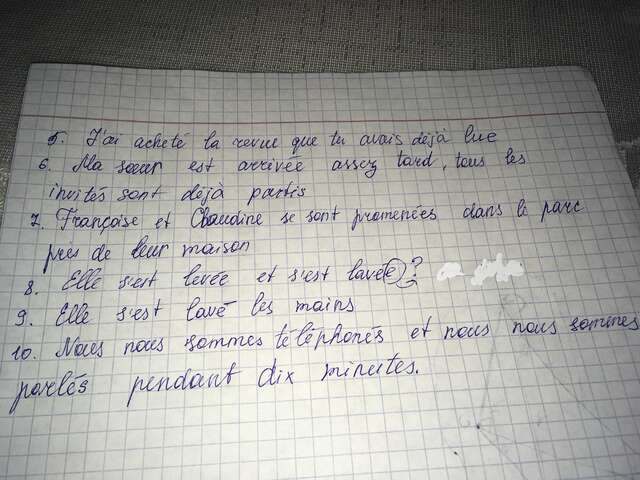 5. J'ai acheté la revue que tu avais déjà lue
6. Ma sœur est arrivée assez tard, tous les
invités sont déjà partis
7. Françoise et Claudine se sont promenées dans le parc
près de leur maison
8. Elle s'est levée et s'est lavée?
9. Elle s'est lavé les mains
10. Nous nous sommes téléphonés et nous nous sommes
parlés pendant dix minutes.